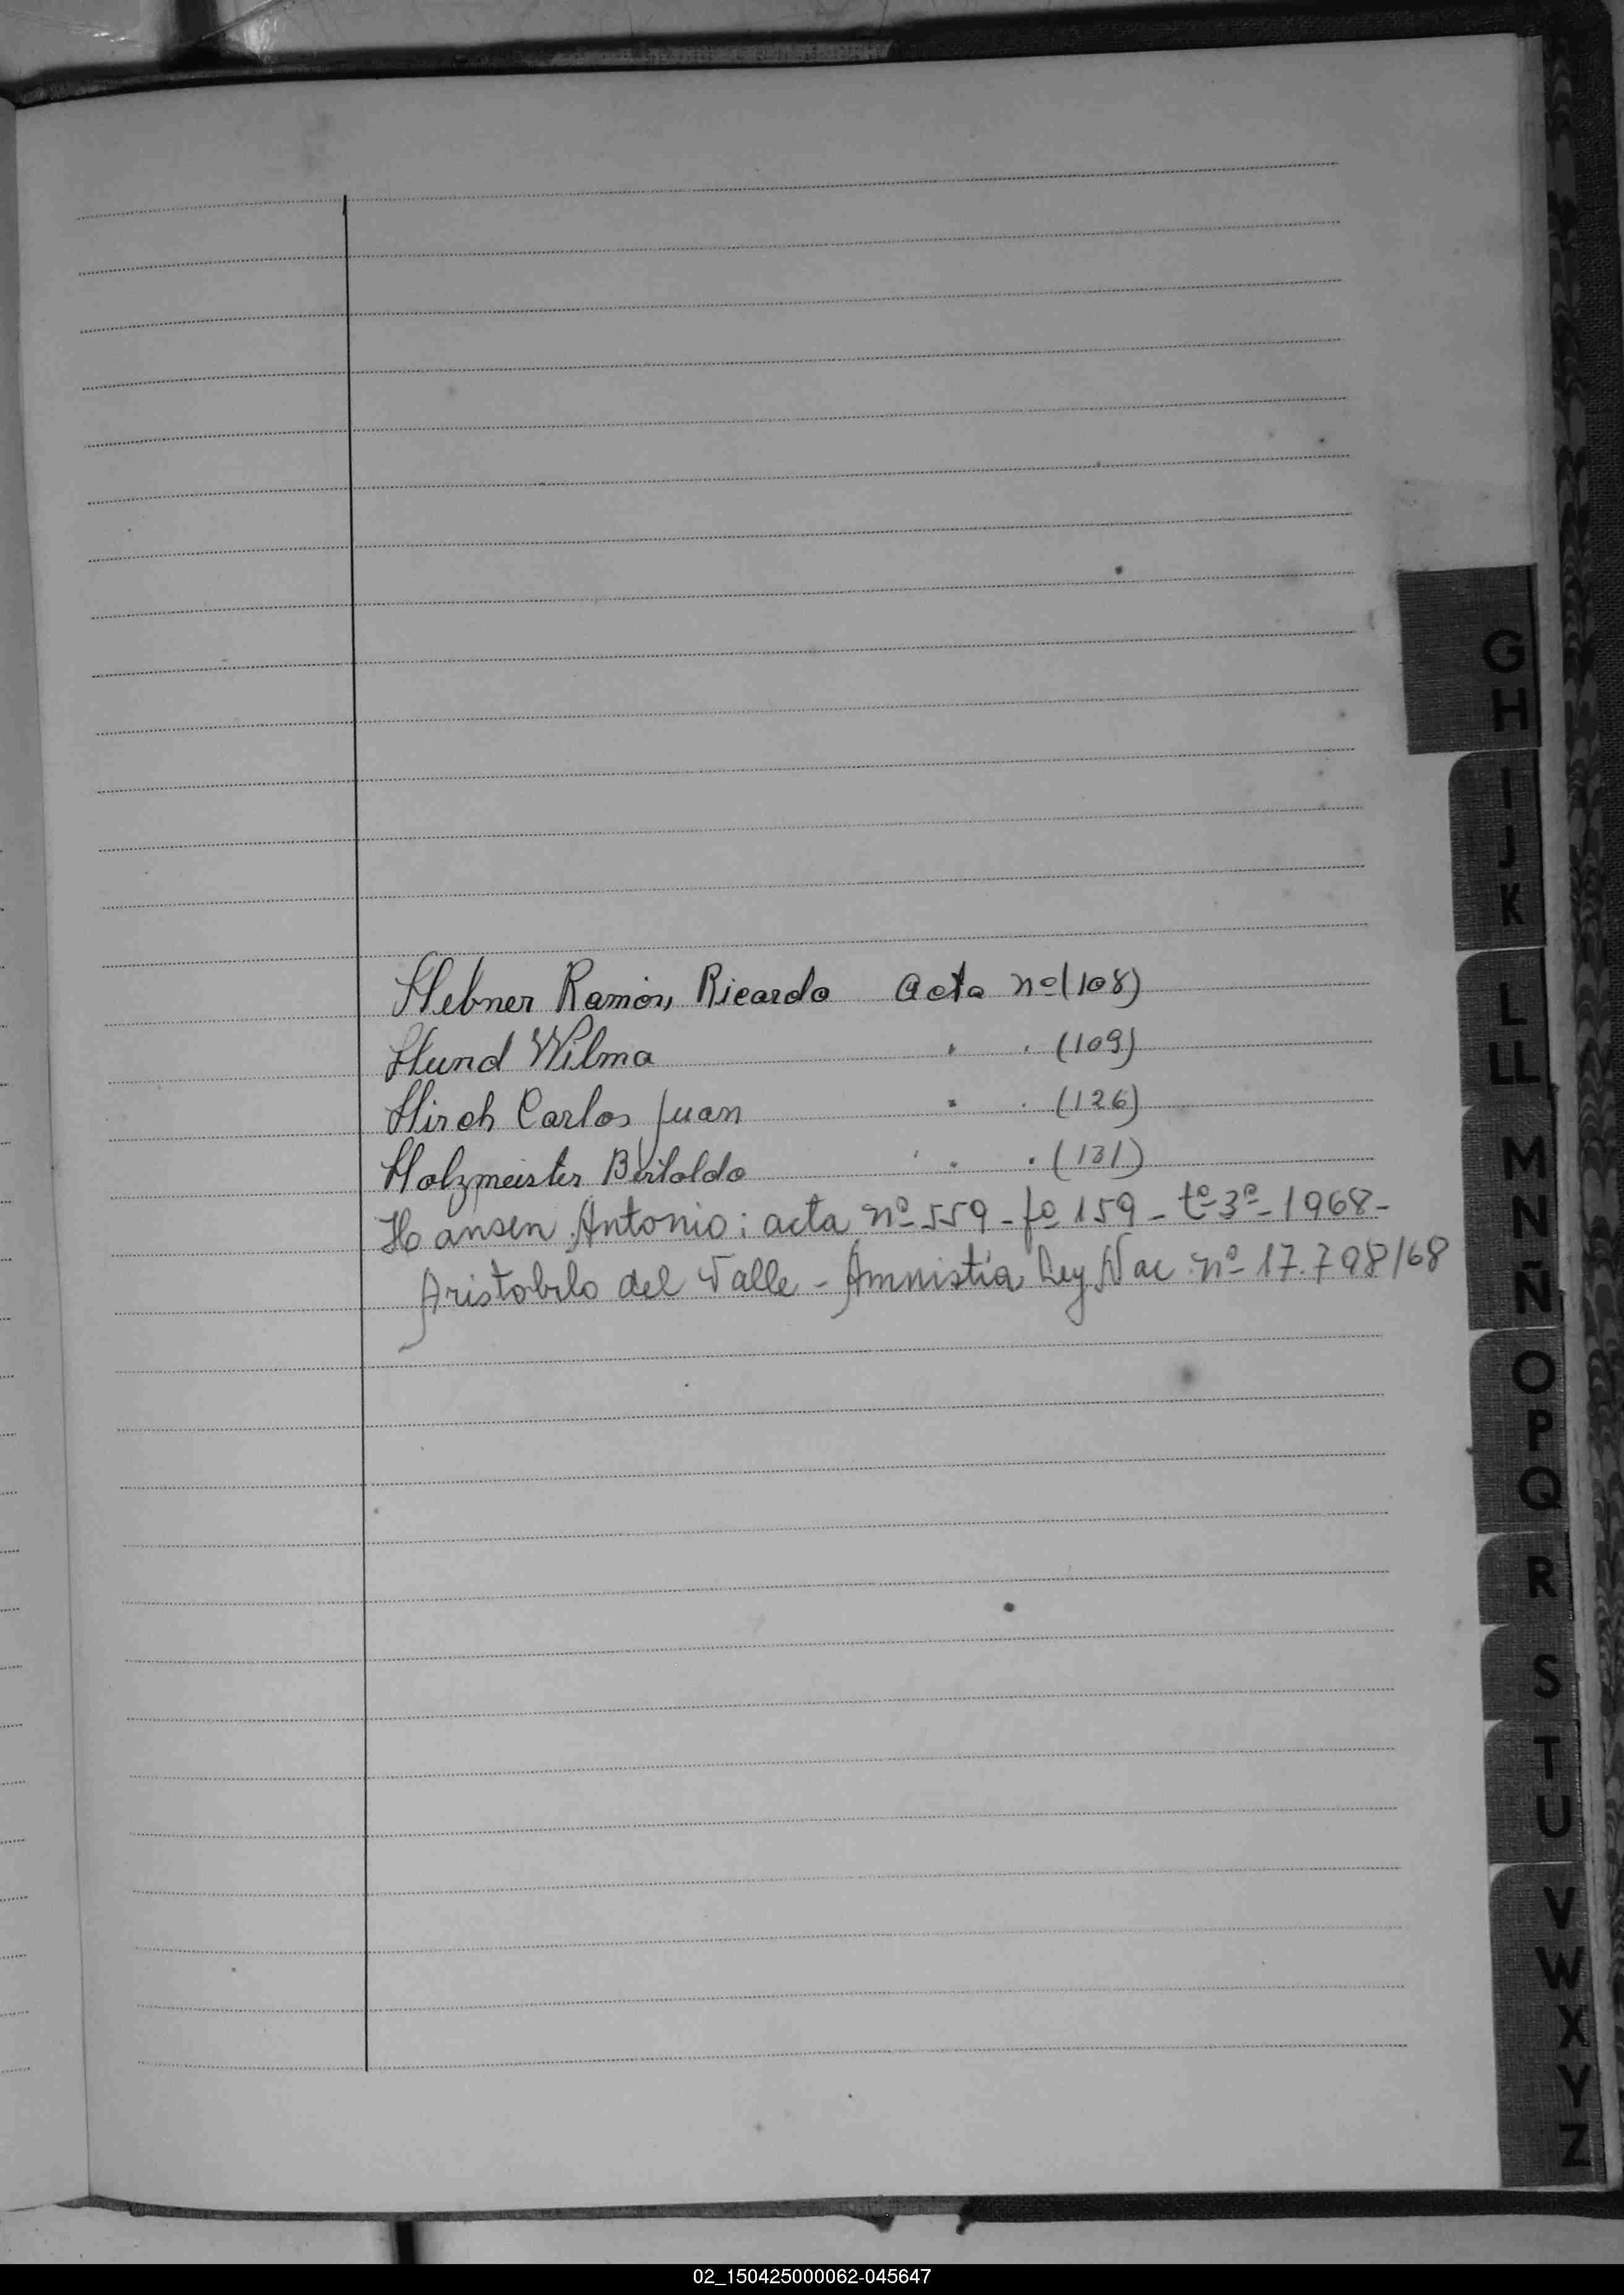 Hebner Ramón, Ricardo acta nº (108)
Hund Wilma " " (109)
Hirch Carlos Juan " " (126)
Holzmeister Bertoldo " " (131)
Hansen Antonio: acta nº 559 - fº 159 - tº 3º - 1968 -
Aristobulo del Valle - Amnistía Ley Nac nº 17.798/68
G
H
I
J
K
L
LL
M
N
Ñ
O
P
Q
R
S
T
U
V
W
X
Y
Z
02_150425000062-045647